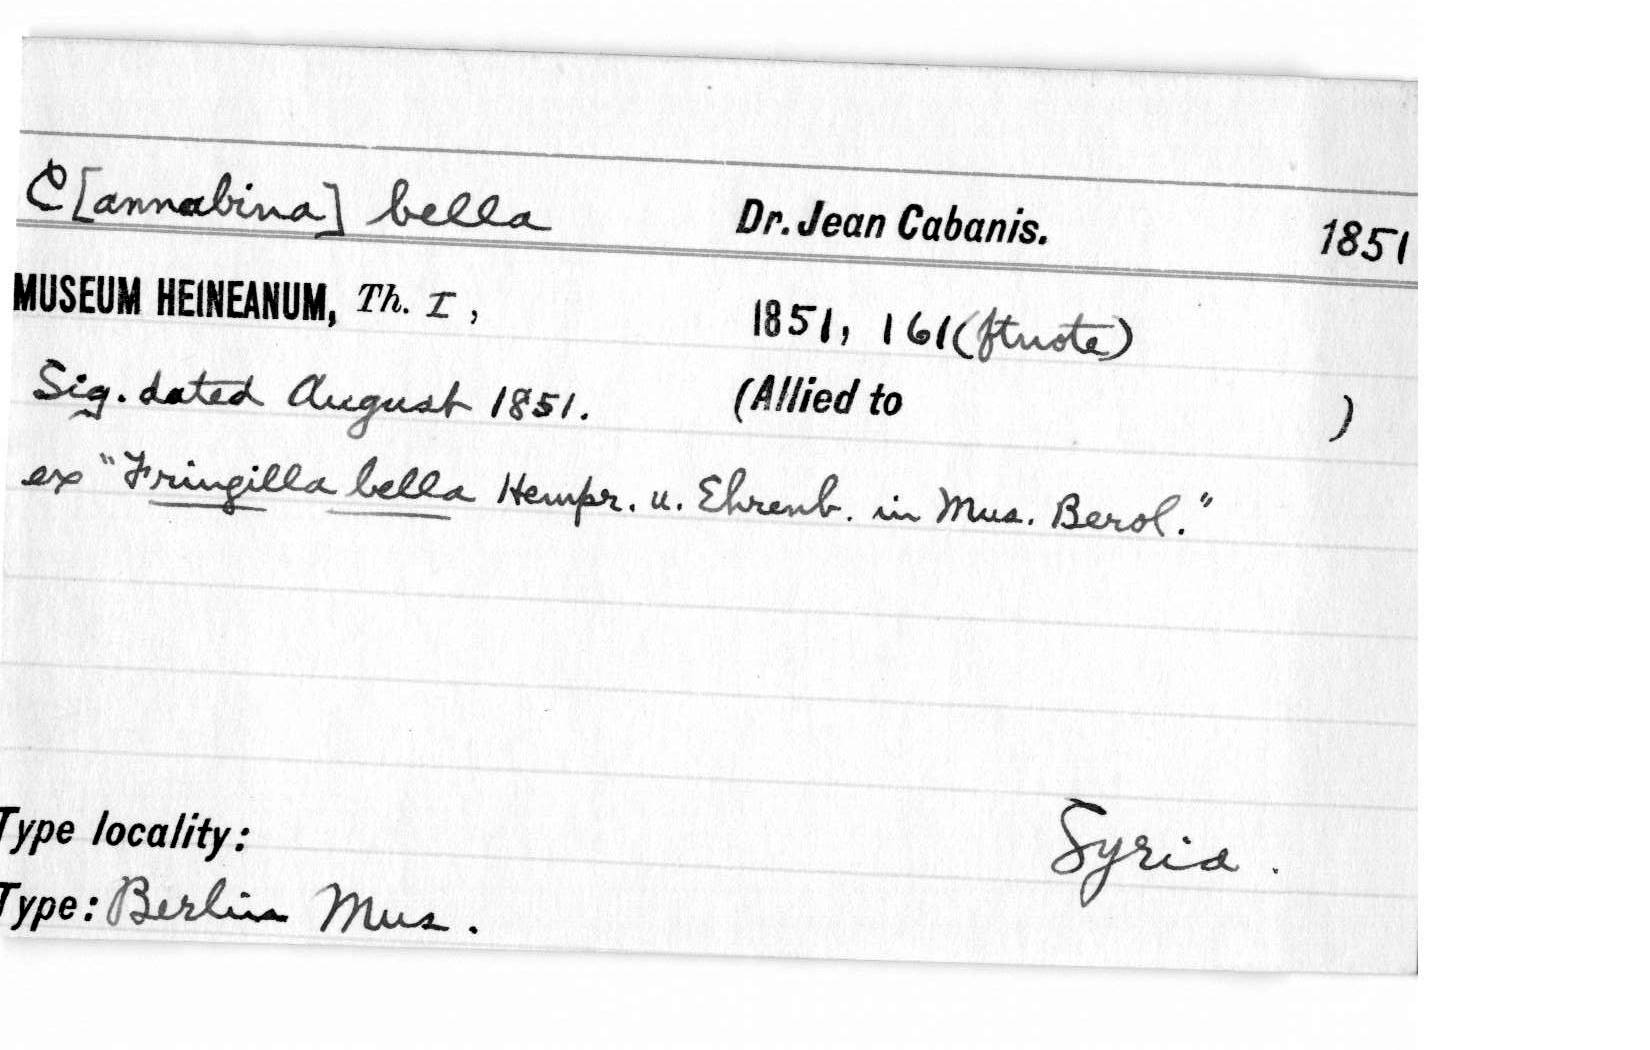 C[annabina] bella Dr. Jean Cabanis. 1851
MUSEUM HEINEANUM, Th. I, 1851, 161(ftnote)
Sig. dated August 1851. (Allied to )
ex "Fringilla bella Hempr. u. Ehrenb. in Mus. Berol."
Type locality: Syria.
Type: Berlin Mus.